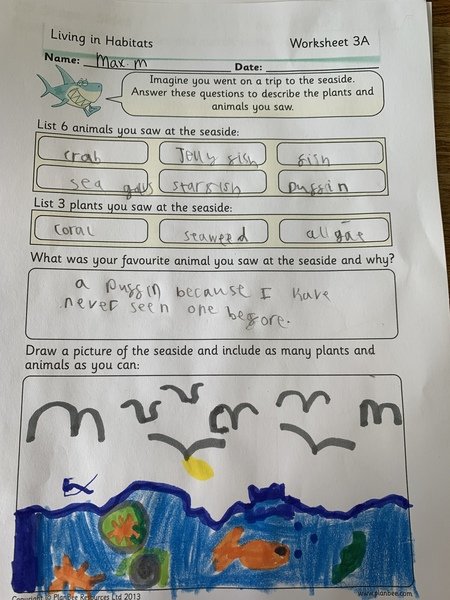 Living in Habitats Worksheet 3A
Name: Max.m Date:
Imagine you went on a trip to the seaside.
Answer these questions to describe the plants and
animals you saw.
List 6 animals you saw at the seaside:
crab Jelly fish fish
sea gulls starfish puffin
List 3 plants you saw at the seaside:
coral seaweed algae
What was your favourite animal you saw at the seaside and why?
a puffin because I have
never seen one before.
Draw a picture of the seaside and include as many plants and
animals as you can:
Copyright © PlanBee Resources Ltd 2013 www.planbee.com